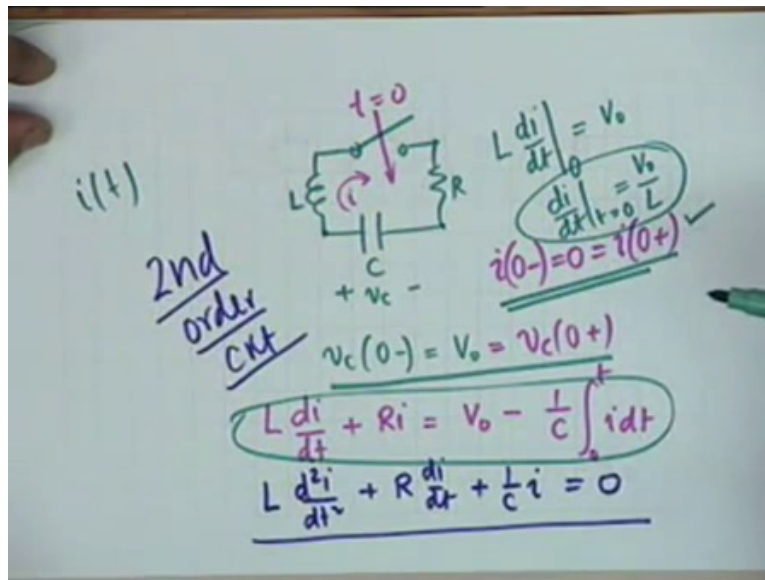 t = 0
L di/dt |₀ = V₀
di/dt |t=0 = V₀/L
i(t)
L
i
R
C
+ vc -
i(0-) = 0 = i(0+) ✓
2nd
order
ckt
vc(0-) = V₀ = vc(0+)
L di/dt + Ri = V₀ - 1/C ∫₀ᵗ i dt
L d²i/dt² + R di/dt + 1/C i = 0